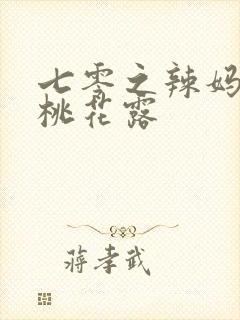 七零之辣妈
桃花露
蒋孝武